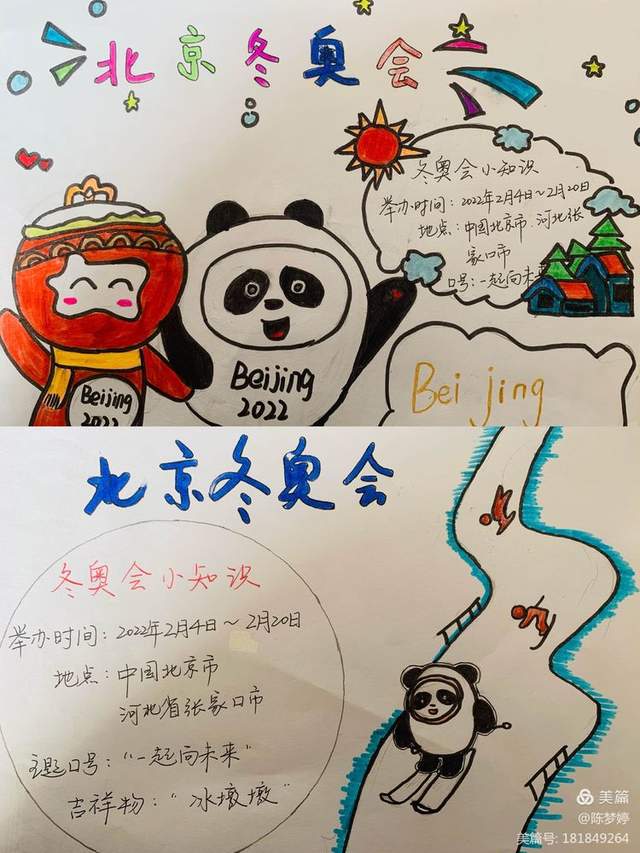 北京冬奥会
冬奥会小知识
举办时间：2022年2月4日～2月20日
地点：中国北京市 河北张
家口市
口号：一起向未来
Beijing
2022
Beijing
2022
Beijing
北京冬奥会
冬奥会小知识
举办时间：2022年2月4日～2月20日
地点：中国北京市
河北省张家口市
主题口号：“一起向未来”
吉祥物：“冰墩墩”
美篇
@陈梦婷
美篇号: 181849264